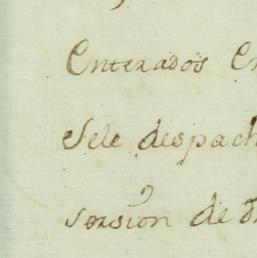 Enterados
Sele despach
sersion de